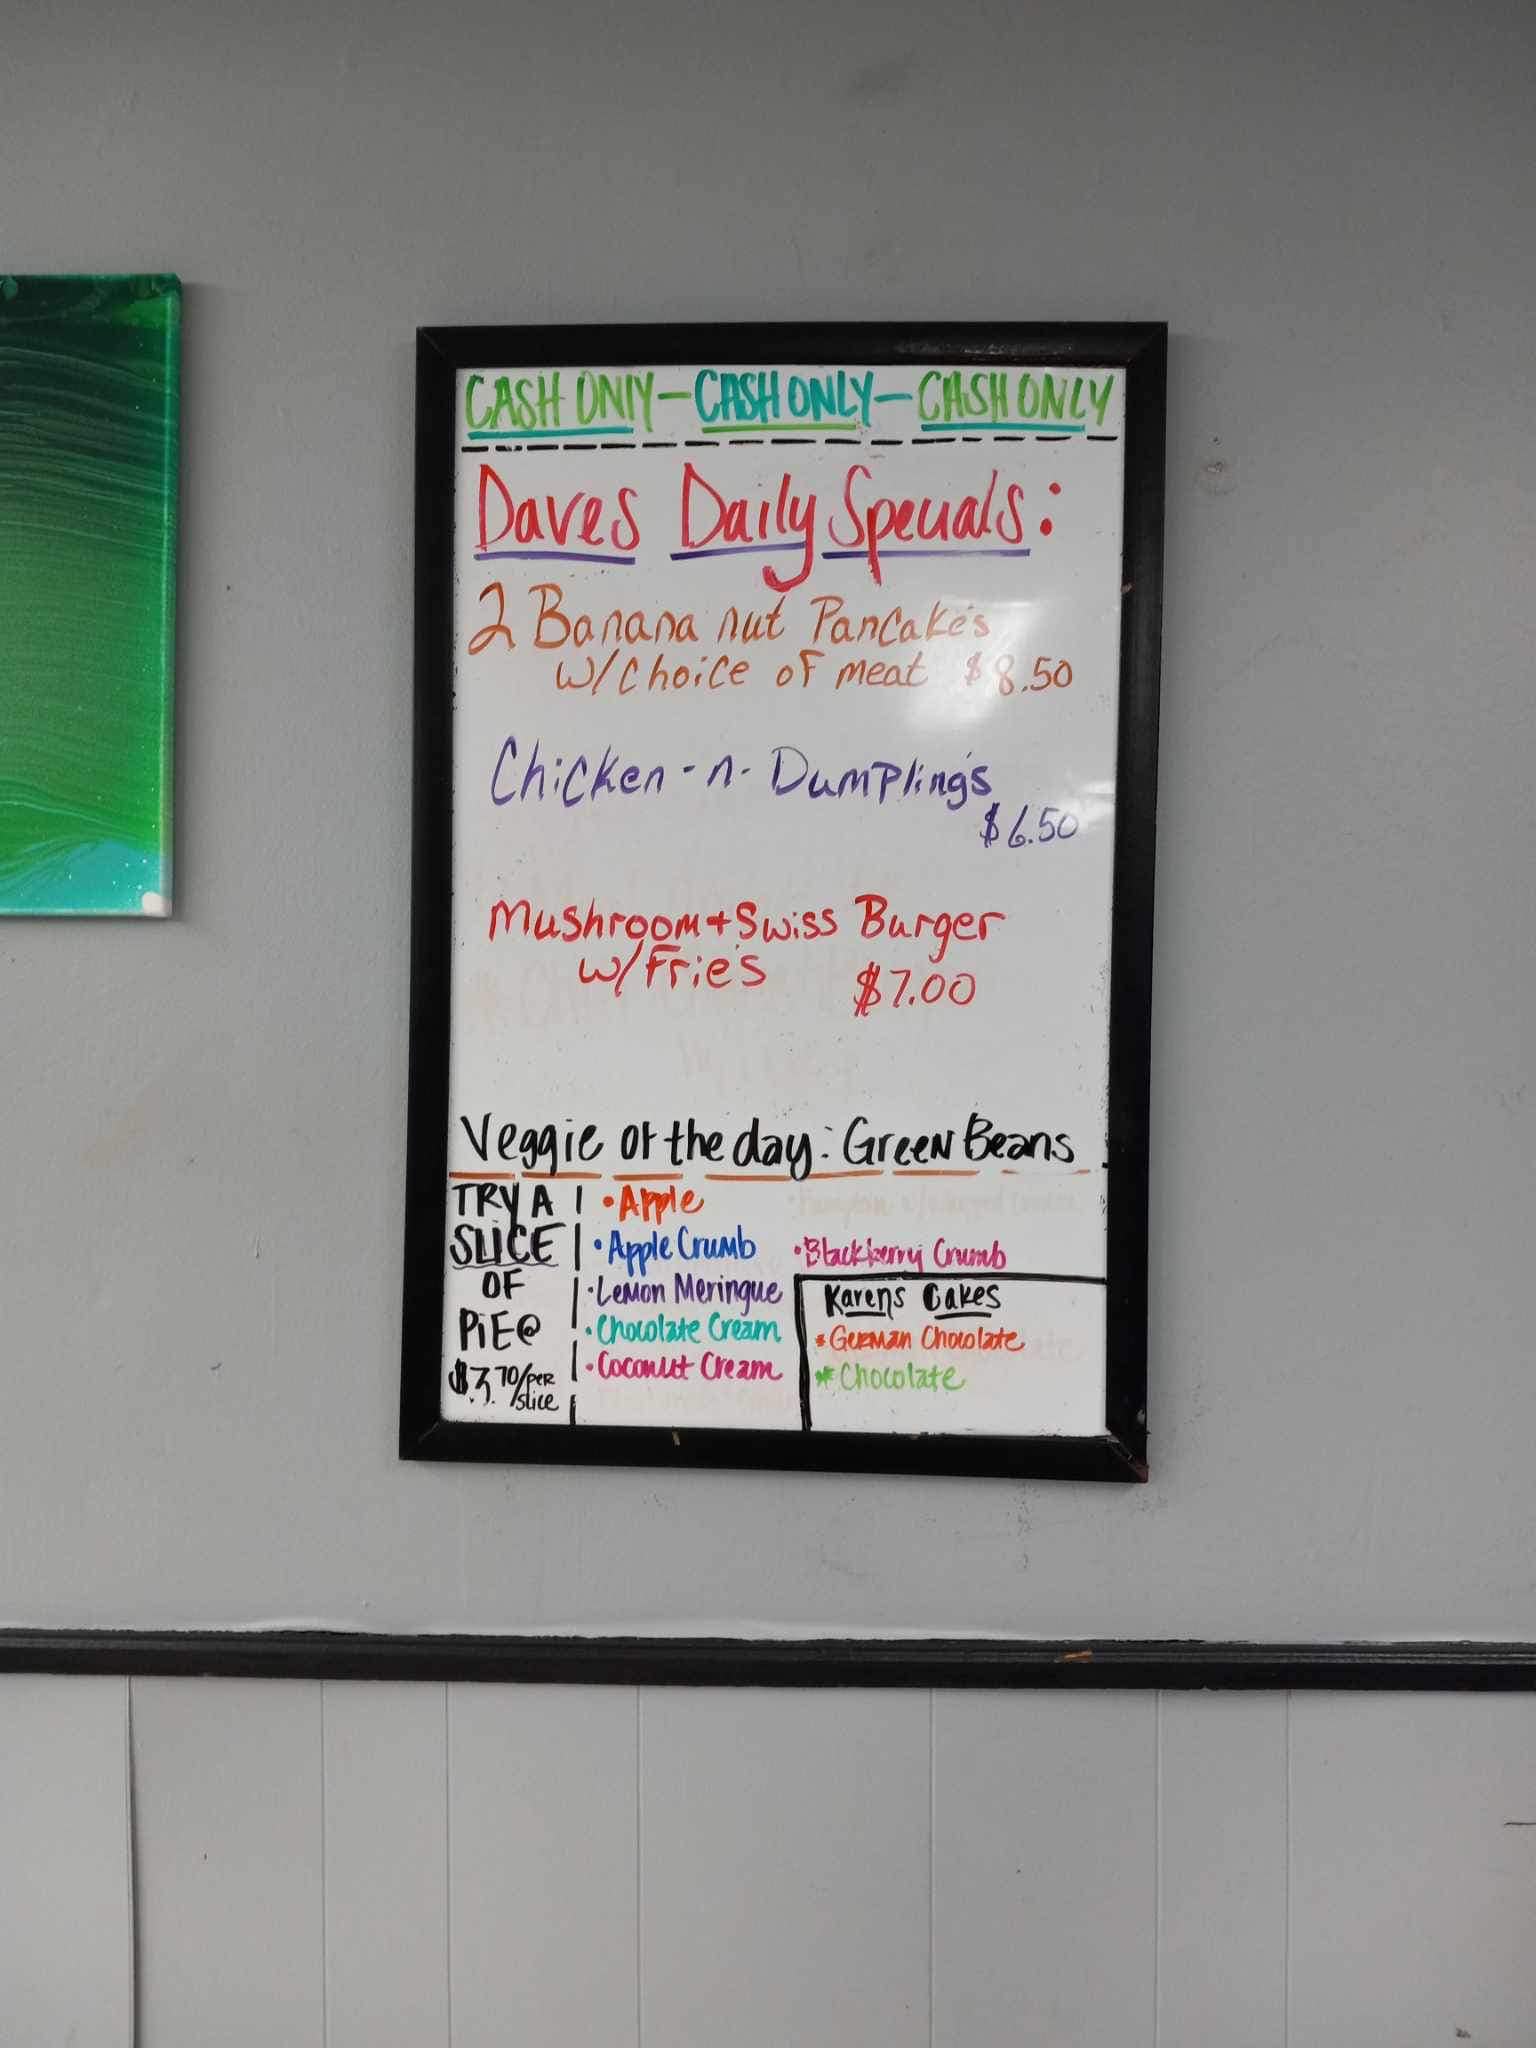 CASH ONLY - CASH ONLY - CASH ONLY
Daves Daily Specials:
2 Banana nut Pancakes
w/choice of meat $8.50
Chicken-n-Dumplings
$6.50
Mushroom + Swiss Burger
w/Fries $7.00
Veggie of the day: Green Beans
TRY A
SLICE
OF
PiE@
$3.70/per
slice
• Apple
• Apple Crumb
• Lemon Meringue
• Chocolate Cream
• Coconut Cream
• Blackberry Crumb
Karens Cakes
* German Chocolate
* Chocolate